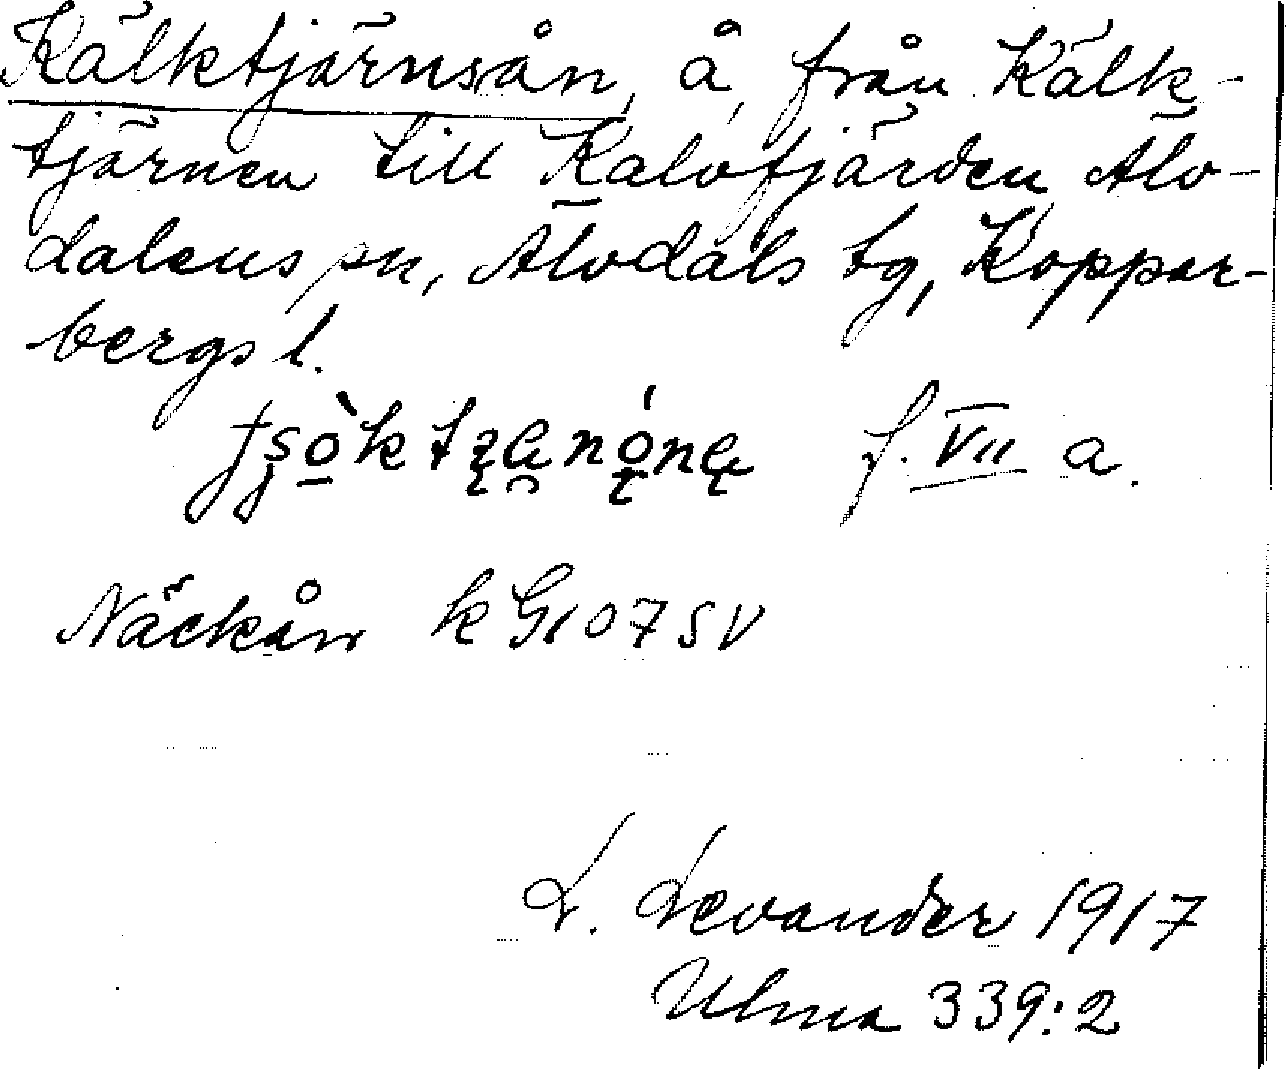 Kälktjärnsån, å, från Kälk-
tjärnen till Kalvfjärden Älv-
dalens sn, Älvdals tg, Koppar-
bergs l.
f. VII a.
Näckån k G107SV
L. Levander 1917
Ulma 339:2